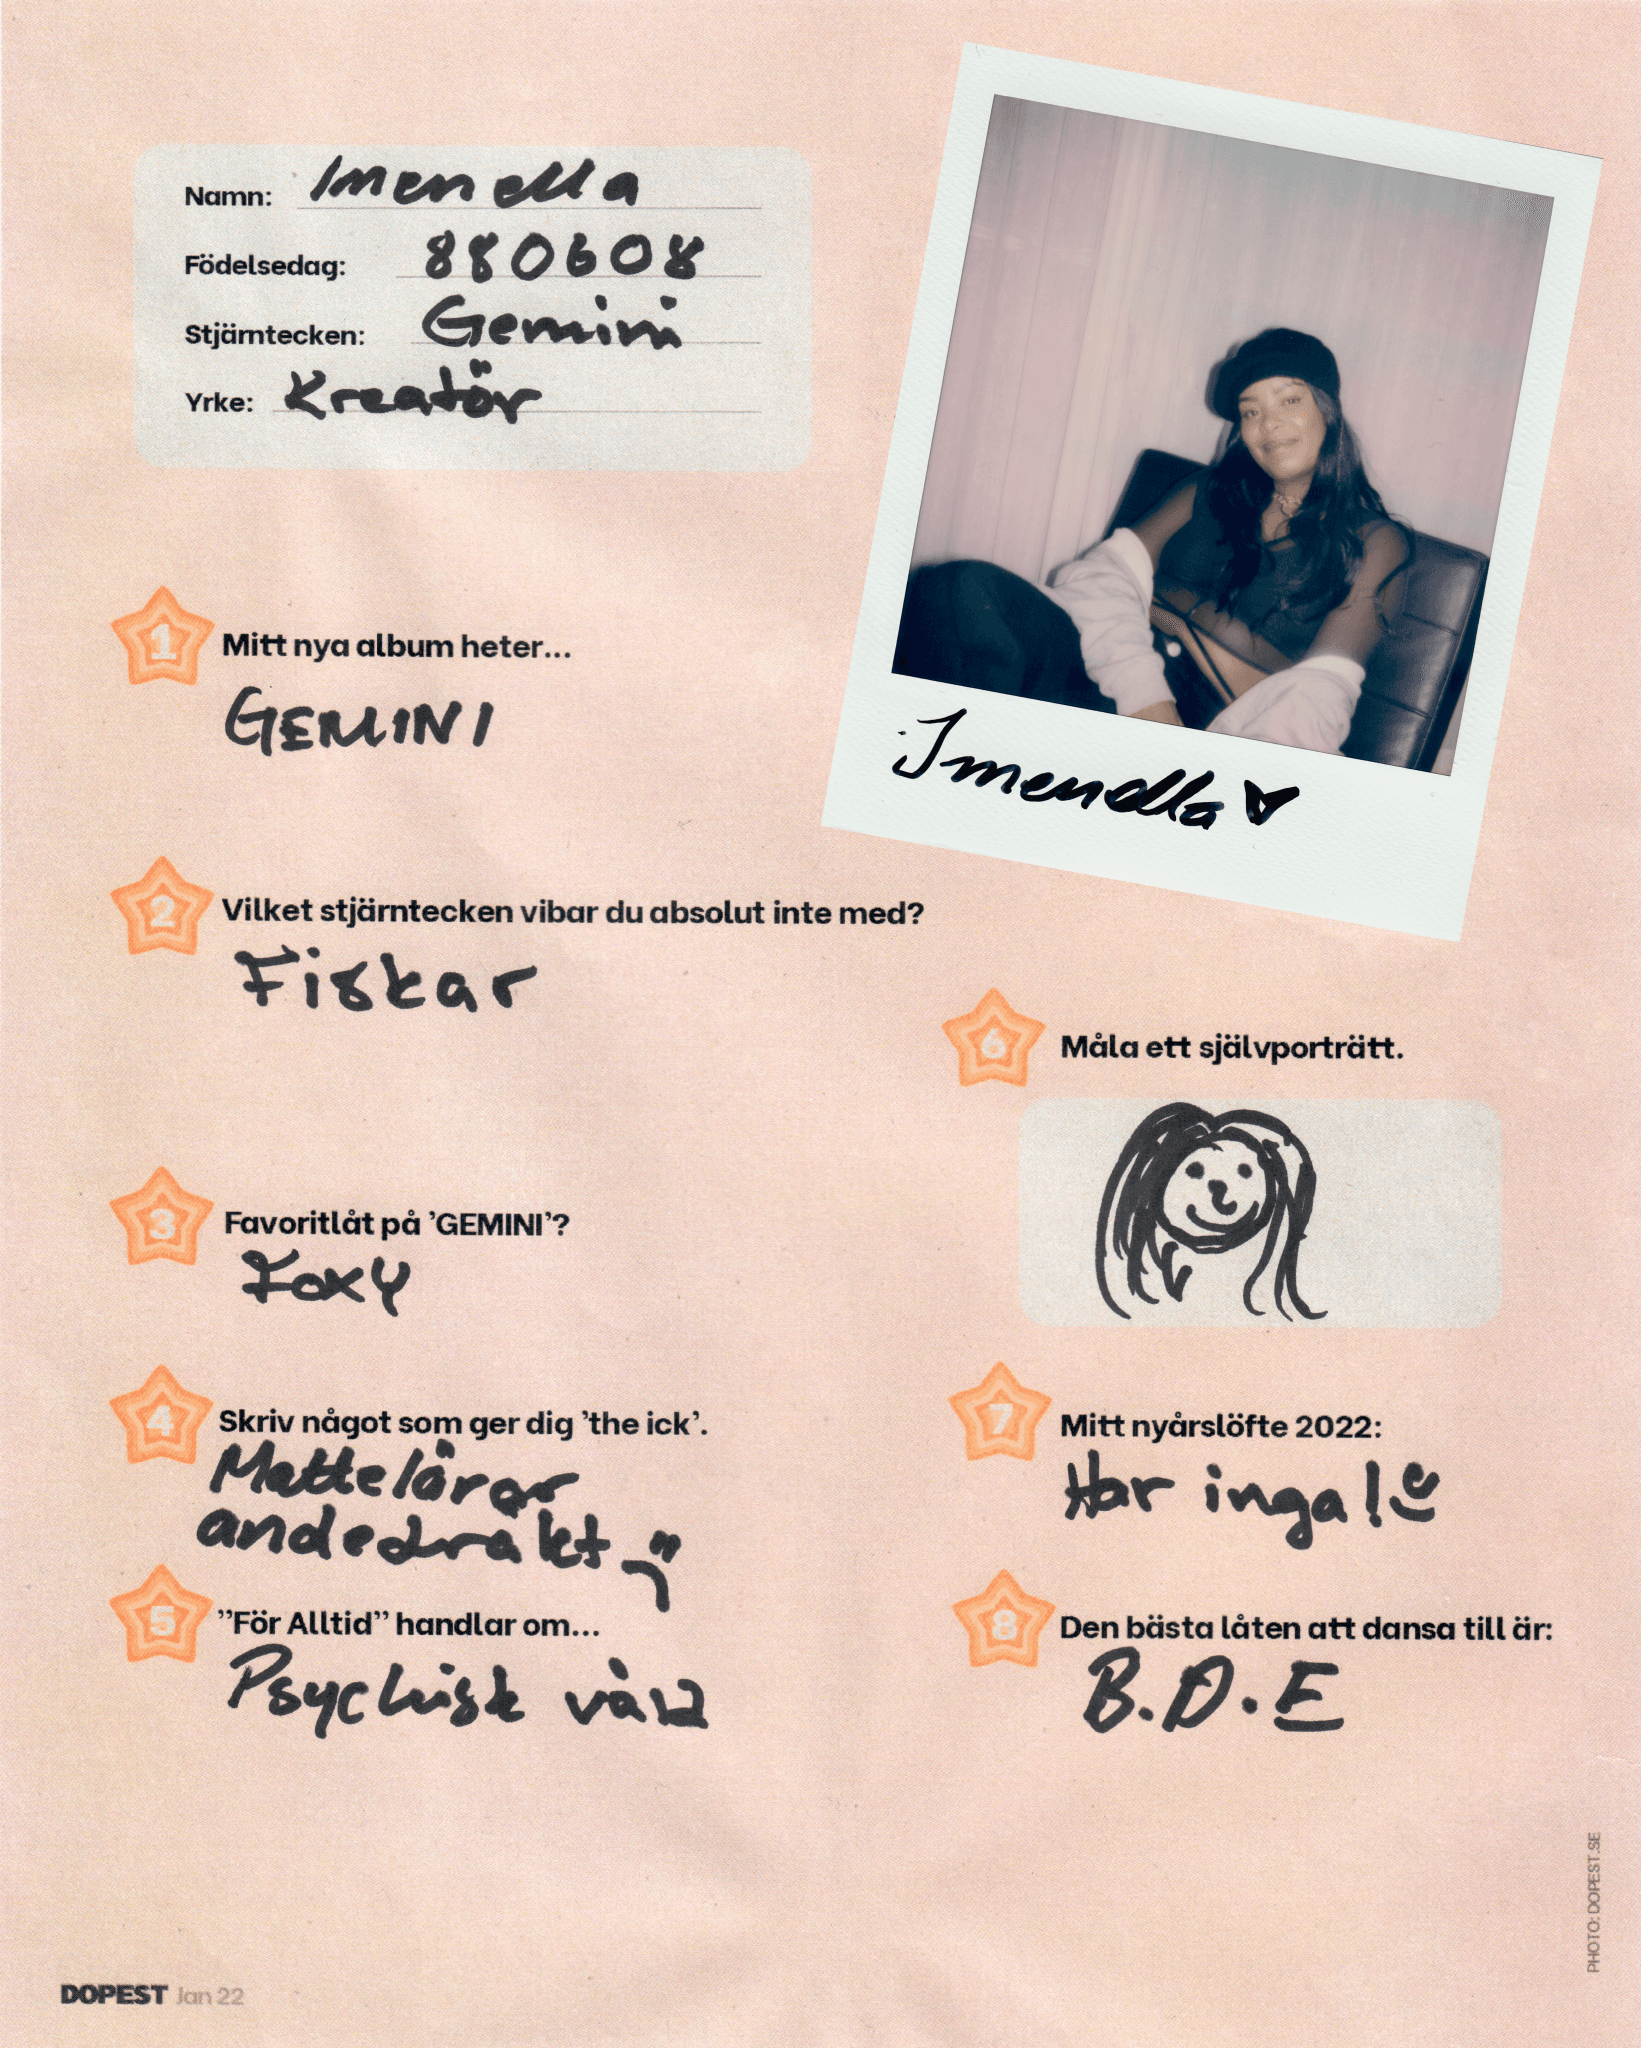 Namn: Imenella
Födelsedag: 880608
Stjärntecken: Gemini
Yrke: Kreatör
Imenella
1 Mitt nya album heter...
GEMINI
2 Vilket stjärntecken vibar du absolut inte med?
Fiskar
3 Favoritlåt på 'GEMINI'?
Foxy
4 Skriv något som ger dig 'the ick'.
Mattelärar
andedräkt
5 ”För Alltid” handlar om...
Psychisk våld
6 Måla ett självporträtt.
7 Mitt nyårslöfte 2022:
Har inga!
8 Den bästa låten att dansa till är:
B.D.E
PHOTO: DOPEST.SE
DOPEST Jan 22